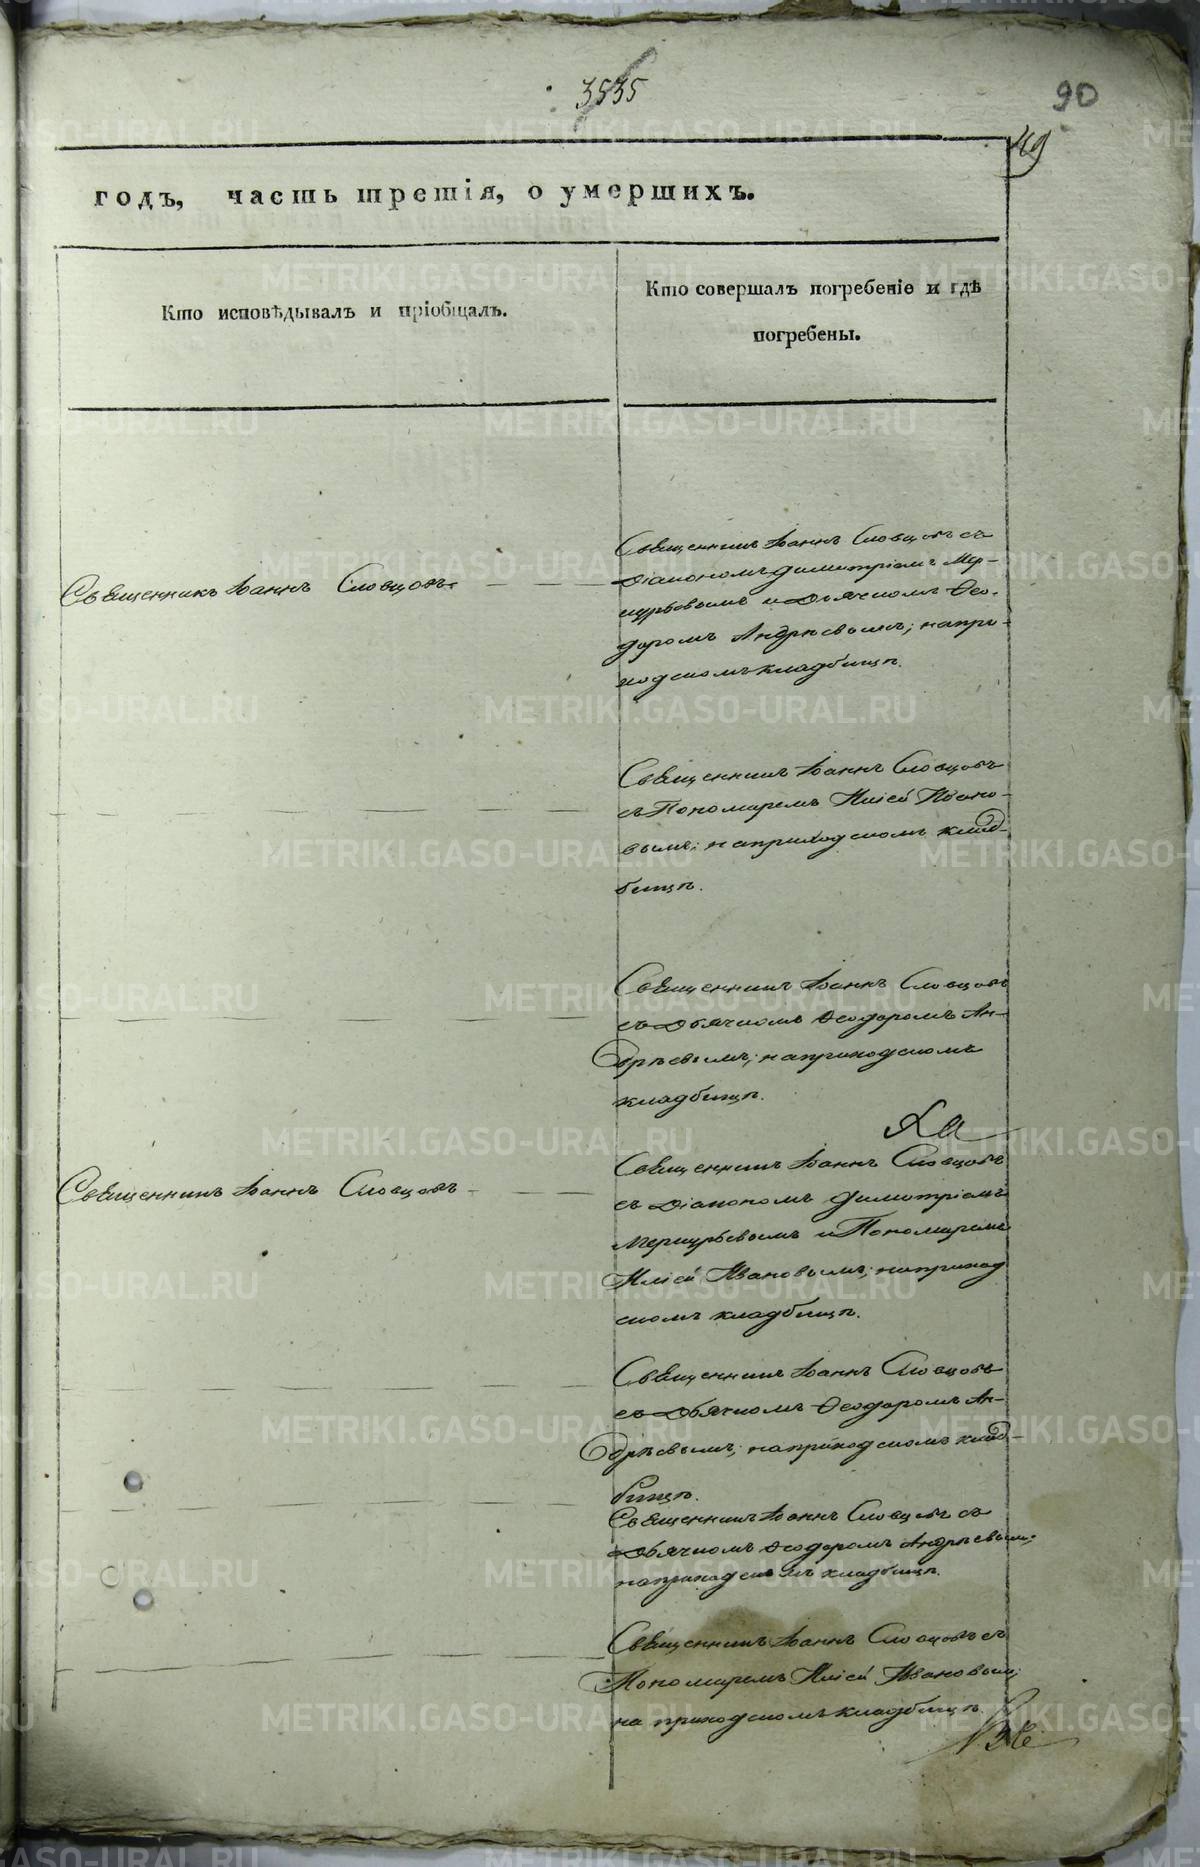 3535
90
49
годъ, часть третія, о умершихъ.
Кто исповѣдывалъ и пріобщалъ.
Кто совершалъ погребеніе и гдѣ
погребены.
Священникъ Іоаннъ Словцовъ.
Священникъ Іоаннъ Словцовъ съ
Діакономъ Димитріемъ Мер-
курьевымъ и Дьячкомъ Ѳео-
доромъ Андрѣевымъ; на при-
ходскомъ кладбищѣ.
Священникъ Іоаннъ Словцовъ
съ Пономаремъ Иліей Ивано-
вымъ; на приходскомъ клад-
бищѣ.
Священникъ Іоаннъ Словцовъ
съ Дьячкомъ Ѳеодоромъ Ан-
дрѣевымъ; на приходскомъ
кладбищѣ.
Священникъ Іоаннъ Словцовъ
Священникъ Іоаннъ Словцовъ
съ Діакономъ Димитріемъ
Меркурьевымъ и Пономаремъ
Иліей Ивановымъ; на приход
скомъ кладбищѣ.
Священникъ Іоаннъ Словцовъ
съ Дьячкомъ Ѳеодоромъ Ан-
дрѣевымъ; на приходскомъ клад-
бищѣ.
Священникъ Іоаннъ Словцовъ съ
Дьячкомъ Ѳеодоромъ Андрѣевым;
на приходскомъ кладбищѣ.
Священникъ Іоаннъ Словцовъ съ
Пономаремъ Иліей Ивановым;
на приходскомъ кладбищѣ.
METRIKI.GASO-URAL.RU